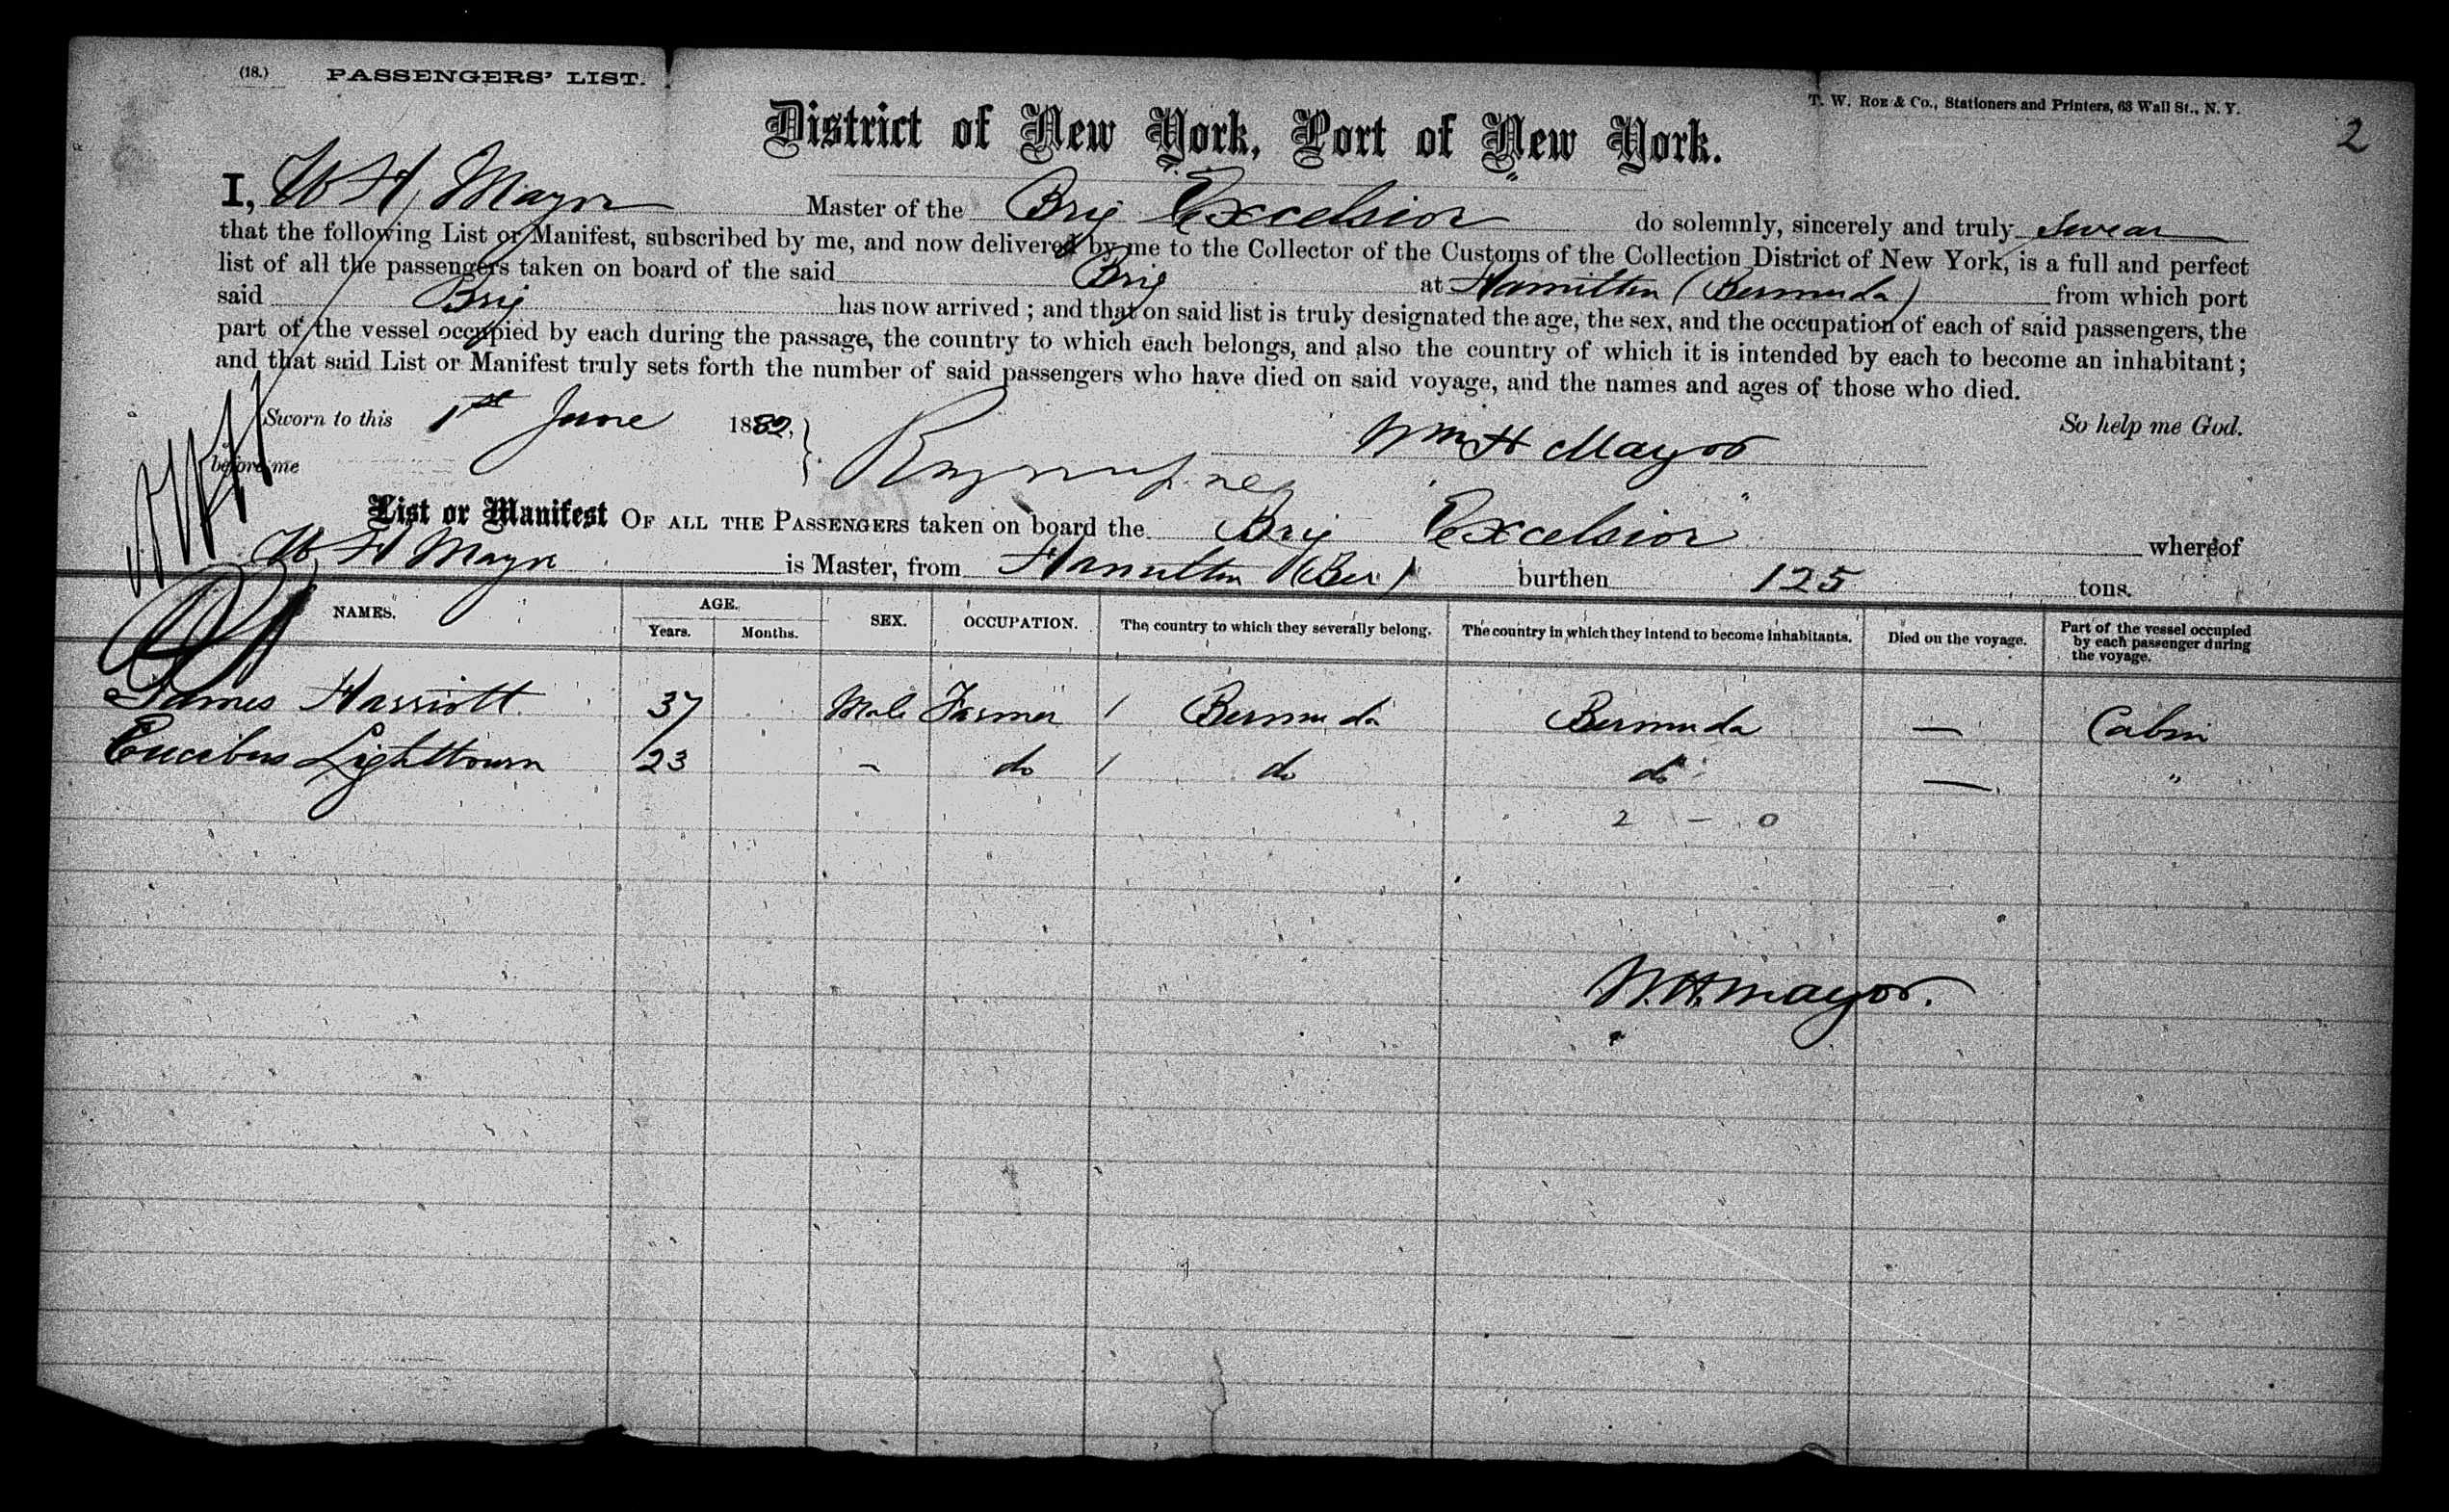 (18.) PASSENGERS' LIST.
T. W. ROE & Co., Stationers and Printers, 63 Wall St., N. Y.
2
District of New York, Port of New York.
I, W H Mayor Master of the Brig "Excelsior" do solemnly, sincerely and truly swear
that the following List or Manifest, subscribed by me, and now delivered by me to the Collector of the Customs of the Collection District of New York, is a full and perfect
list of all the passengers taken on board of the said Brig at Hamilton (Bermuda) from which port
said Brig has now arrived; and that on said list is truly designated the age, the sex, and the occupation of each of said passengers, the
part of the vessel occupied by each during the passage, the country to which each belongs, and also the country of which it is intended by each to become an inhabitant;
and that said List or Manifest truly sets forth the number of said passengers who have died on said voyage, and the names and ages of those who died.
Sworn to this 1st June 1882, So help me God.
before me Wm H Mayor
List or Manifest OF ALL THE PASSENGERS taken on board the Brig "Excelsior" whereof
W H Mayor is Master, from Hamilton (Ber) burthen 125 tons.
NAMES. AGE. Years. Months. SEX. OCCUPATION. The country to which they severally belong. The country in which they intend to become inhabitants. Died on the voyage. Part of the vessel occupied by each passenger during the voyage.
James Harriott 37 Male Farmer / Bermuda Bermuda — Cabin
Lightbourn 23 - do / do do — "
2 - 0
W. H. Mayor.